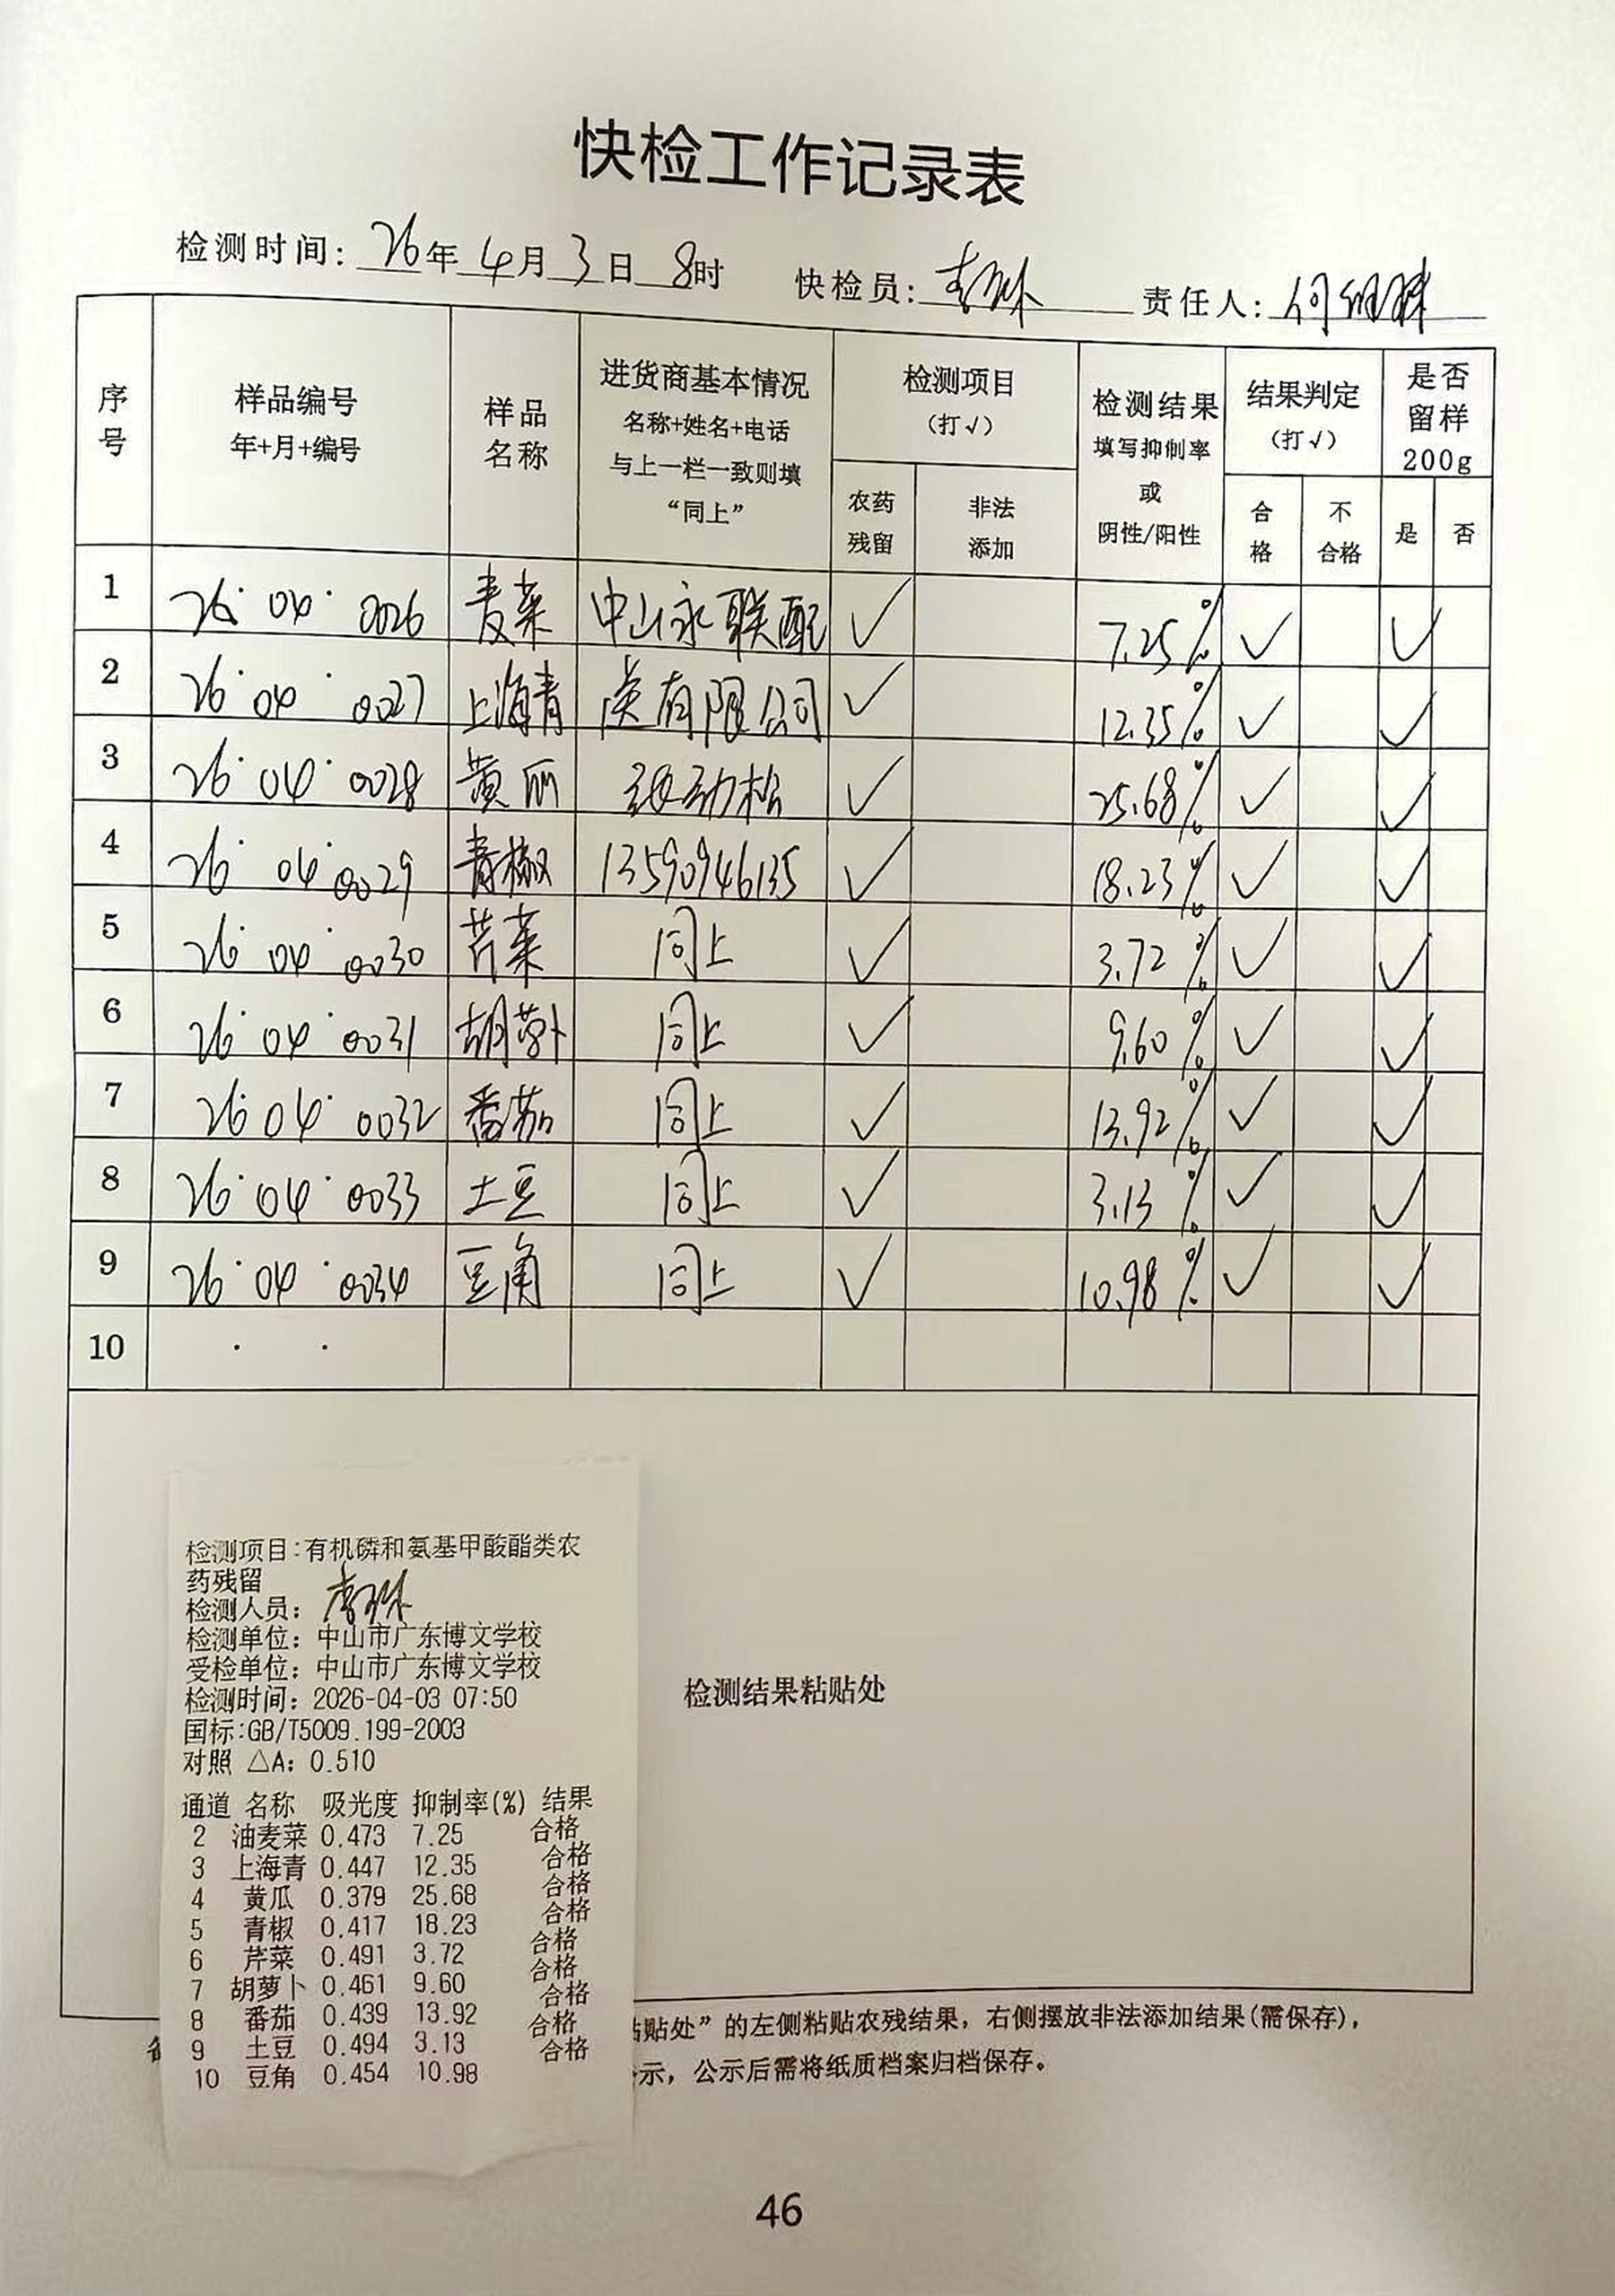 快检工作记录表
检测时间: 26年 4月 3日 8时 快检员: 责任人:
序号 样品编号 年+月+编号 样品名称 进货商基本情况 名称+姓名+电话 与上一栏一致则填“同上” 检测项目 (打√) 农药残留 非法添加 检测结果 填写抑制率 或 阴性/阳性 结果判定 (打√) 合格 不合格 是否留样 200g 是 否
1 26·04·0026 麦菜 中山永联配 √ 7.25% √ √
2 26·04·0027 上海青 送有限公司 √ 12.35% √ √
3 26·04·0028 黄瓜 劲松 √ 25.68% √ √
4 26·04·0029 青椒 13590946135 √ 18.23% √ √
5 26·04·0030 芹菜 同上 √ 3.72% √ √
6 26·04·0031 胡萝卜 同上 √ 9.60% √ √
7 26·04·0032 番茄 同上 √ 13.92% √ √
8 26·04·0033 土豆 同上 √ 3.13% √ √
9 26·04·0034 豆角 同上 √ 10.98% √ √
10 · ·
检测项目:有机磷和氨基甲酸酯类农
药残留
检测人员:
检测单位: 中山市广东博文学校
受检单位: 中山市广东博文学校
检测时间: 2026-04-03 07:50
国标:GB/T5009.199-2003
对照 △A: 0.510
通道 名称 吸光度 抑制率(%) 结果
2 油麦菜 0.473 7.25 合格
3 上海青 0.447 12.35 合格
4 黄瓜 0.379 25.68 合格
5 青椒 0.417 18.23 合格
6 芹菜 0.491 3.72 合格
7 胡萝卜 0.461 9.60 合格
8 番茄 0.439 13.92 合格
9 土豆 0.494 3.13 合格
10 豆角 0.454 10.98 合格
检测结果粘贴处
粘贴处”的左侧粘贴农残结果，右侧摆放非法添加结果(需保存)，
示，公示后需将纸质档案归档保存。
46